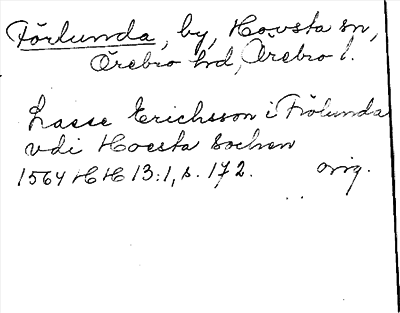 Förlunda, by, Hovsta sn,
Örebro hd, Örebro l.
Lasse Erichsson i Frölunda
vdi Hoesta Sochen
1564 HH 13:1, s. 172. orig.